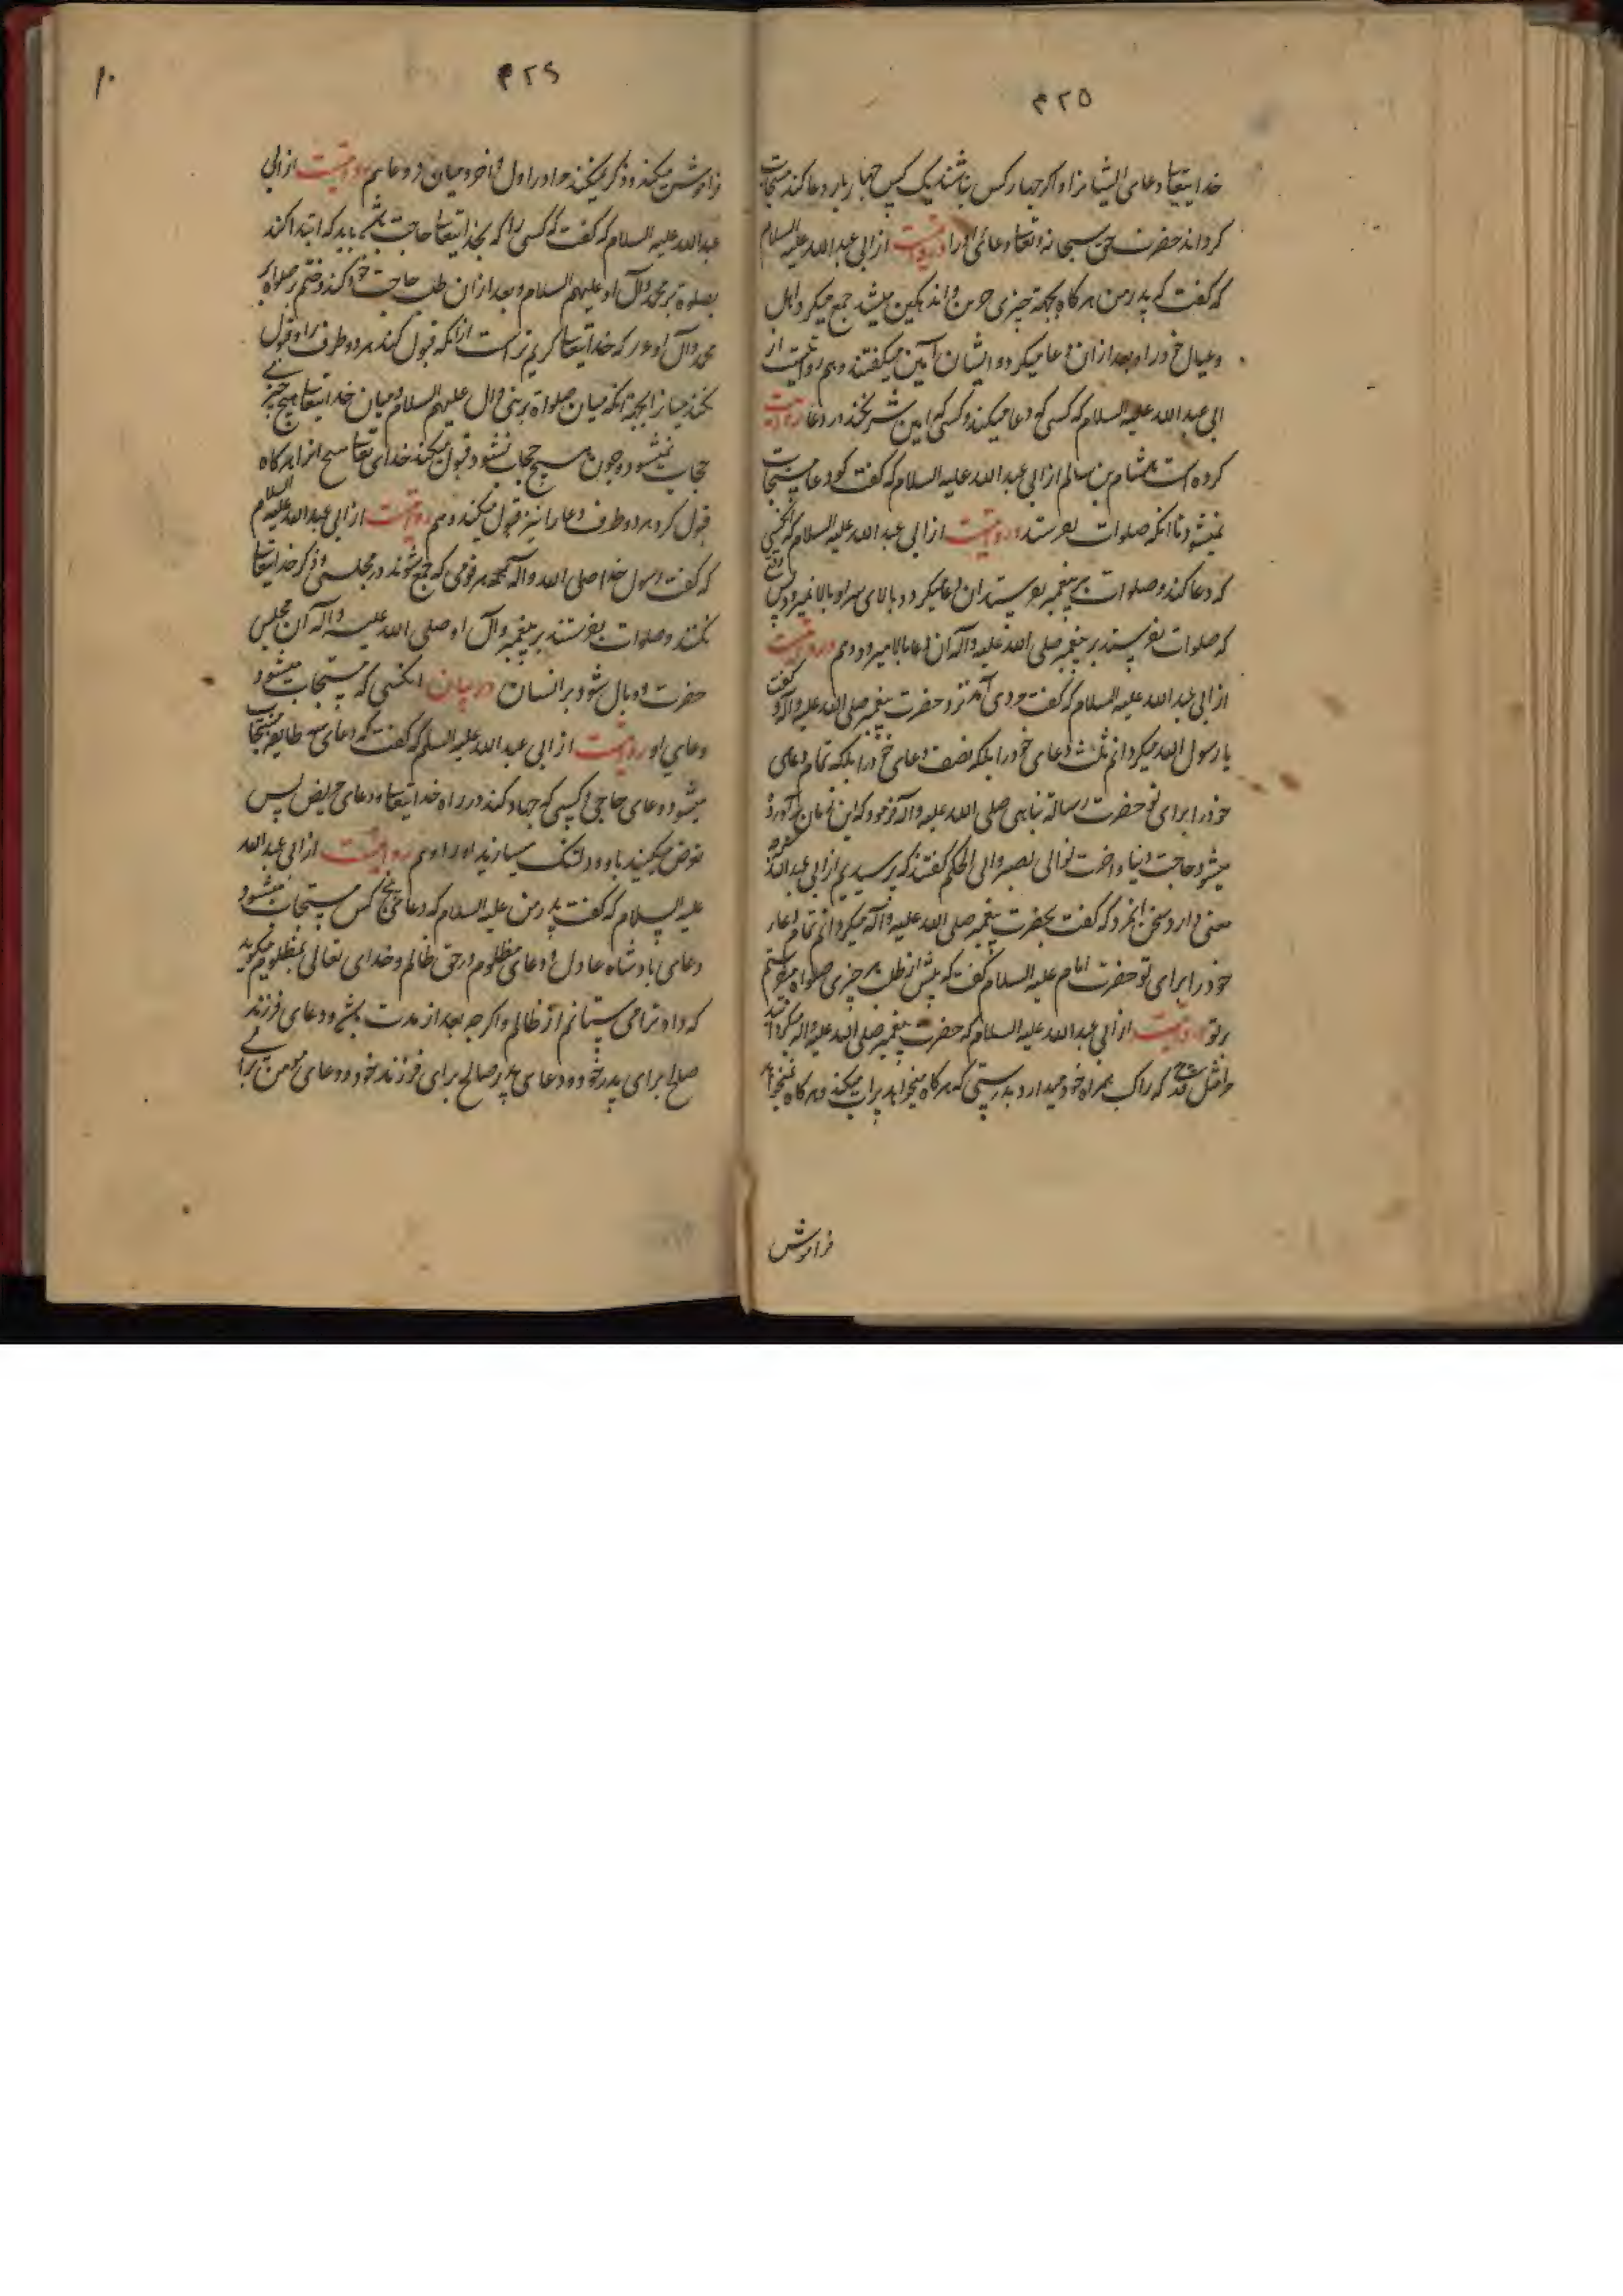 ۴۲۵
خدایتعالی دعای ایشانرا و اکر چهار کس نباشند یک کس چهار بار دعا کند مستجاب
کرداند حضرت حق سبحانه و تعالی دعای او را و روایتست از ابی عبدالله علیه السلام
که گفت که پدر من هرکاه بجهة چیزی حزین و اندوهکین میشد جمع میکرد اهل
و عیال خود را و بعد از ان دعا میکرد و ایشان آمین میگفتند و هم روایتست از
ابی عبدالله علیه السلام که کسی که دعا میکند و کسی که امین شریکند در دعا روایت
کرده است هشام بن سالم از ابی عبدالله علیه السلام که گفت که دعا مستجاب
نمیشود تا انکه صلوات بفرستد و روایتست از ابی عبدالله علیه السلام که انکسی
که دعا کند و صلوات بر پیغمبر نفرستد ان دعا میکردد بالای سر او بالا نمیرود پس وقتی
که صلوات بفرستد بر پیغمبر صلی الله علیه و آله آن دعا بالا میرود و هم روایتست
از ابی عبدالله علیه السلام که گفت مردی آمد نزد حضرت پیغمبر صلی الله علیه و آله و گفت
یا رسول الله میکردانم ثلث دعای خود را بلکه نصف دعای خود را بلکه تمام دعای
خود را برای تو حضرت رسالة پناهی صلی الله علیه و آله فرمود که این زمان برآورده
میشود حاجت دنیا و اخرت تو ابی بصیر و ابی الحکم گفتند که پرسیدیم از ابی عبدالله که چه
معنی دارد سخن انمرد که گفت بحضرت پیغمبر صلی الله علیه و آله میکردانم تمام دعای
خود را برای تو حضرت امام علیه السلام گفت که پیش از طلب هر چیزی صلواة میفرستم
بر تو روایتست از ابی عبدالله علیه السلام که حضرت پیغمبر صلی الله علیه و اله
مرا مثل قدح که راکب همراه خود میدارد بدرستی که هرکاه میخواهد پر اب میکند و هرکاه نمیخواهد
فراموش
۴۲۶
۱۰
فراموش میکند و ذکر میکنید مرا در اول و اخر و میان دعا هم روایتست از ابی
عبدالله علیه السلام که گفت که کسی را که بخدایتعالی حاجت باشد باید که ابتدا کند
بصلوة بر محمد و آل او علیهم السلام و بعد از ان طلب حاجت خود کند و ختم بر صلواة بر
محمد و آل او که خدایتعالی کریم تر است از انکه قبول کند هر دو طرف را و قبول
نکند میانرا بجهة انکه میان صلواة بر نبی و ال علیهم السلام و میان خدایتعالی هیچ چیز
حجاب نمیشود و چون هیچ حجاب نشود قبول میکند خدای تعالی انرا هرکاه
قبول کرد هر دو طرف دعا را نیز قبول میکند و هم روایتست از ابی عبدالله علیه السلام
که گفت رسول خدا صلی الله و آله که هر قومی که جمع شوند در مجلسی و ذکر خدایتعالی
نکنند و صلوات نفرستند بر پیغمبر و آل او صلی الله علیه و آله آن مجلس
حسرت و وبال شود بر انسان در بیان انکسی که مستجاب میشود
دعای او روایتست از ابی عبدالله علیه السلم که گفت که دعای سه طایفه مستجاب
میشود دعای حاجی و کسی که جهاد کند در راه خدایتعالی و دعای مریض پس
تعرض مکنید باو و دلتنک مسازید او را و هم روایتست از ابی عبدالله
علیه السلام که گفت پدر من علیه السلام که دعای پنج کس مستجاب میشود
دعای پادشاه عادل و دعای مظلوم در حق ظالم و خدای تعالی بمظلوم میکوید
که داد ترا می ستانم از ظالم و اکرچه بعد از مدت باشد و دعای فرزند
صالح برای پدر خود و دعای پدر صالح برای فرزند خود و دعای مومن برای